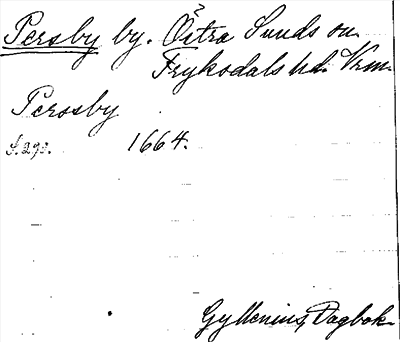 Persby by. Östra Sunds sn.
Fryksdals hd. Vrm.
Persby
s. 290. 1664.
Gyllenius, Dagbok.